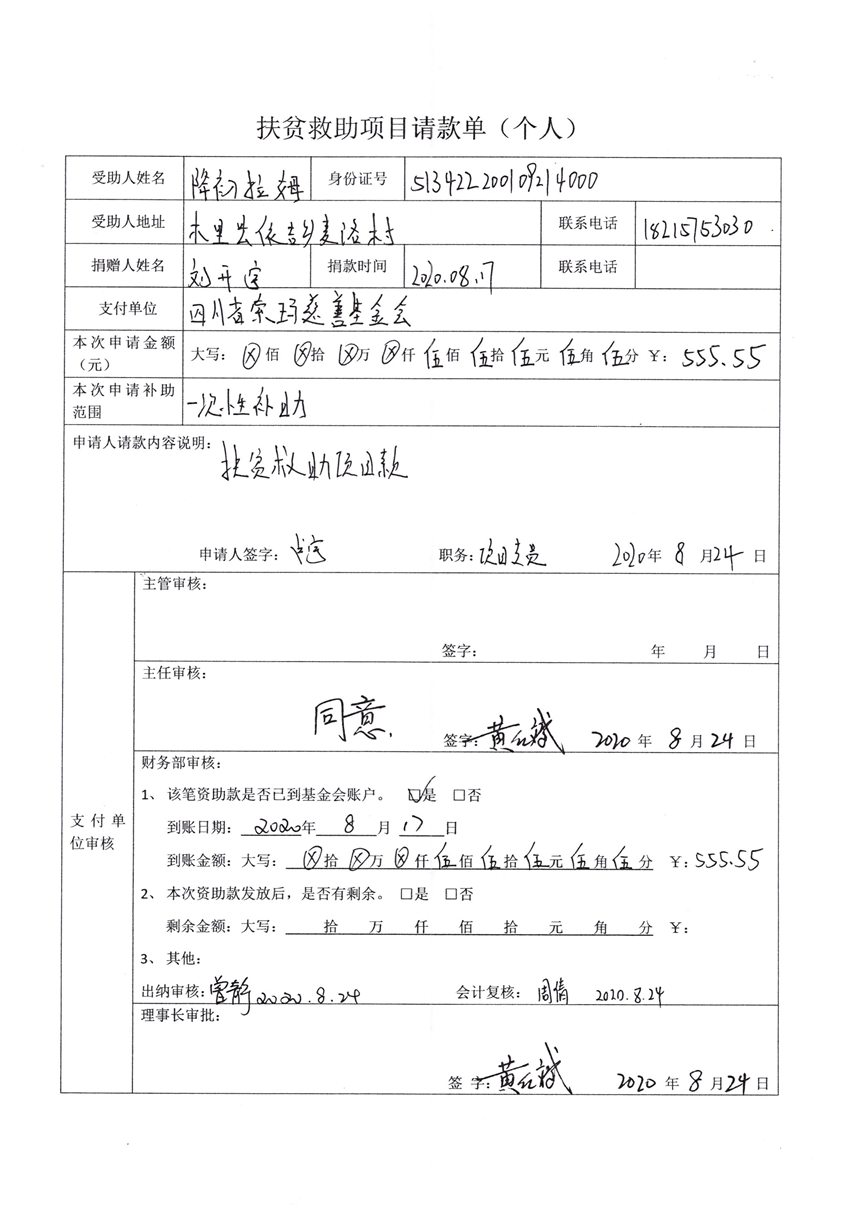 扶贫救助项目请款单（个人）
受助人姓名 降初拉姆 身份证号 513422200109214000
受助人地址 木里县依吉乡麦洛村 联系电话 18215753030
捐赠人姓名 刘开宝 捐款时间 2020.08.17 联系电话
支付单位 四川省索玛慈善基金会
本次申请金额（元） 大写：ⓧ佰 ⓧ拾 ⓧ万 ⓧ仟 伍佰 伍拾 伍元 伍角 伍分 ￥：555.55
本次申请补助范围 一次性补助
申请人请款内容说明：扶贫救助项目款
申请人签字： 职务：项目专员 2020年 8 月24 日
主管审核：
签字： 年 月 日
主任审核：
同意.
签字：黄红斌 2020 年 8 月 24 日
支付单位审核
财务部审核：
1、 该笔资助款是否已到基金会账户。 ☑是 □否
到账日期：2020年 8 月 17 日
到账金额：大写：ⓧ拾 ⓧ万 ⓧ仟 伍佰 伍拾 伍元 伍角 伍分 ￥：555.55
2、 本次资助款发放后，是否有剩余。 □是 □否
剩余金额：大写： 拾 万 仟 佰 拾 元 角 分 ￥：
3、 其他：
出纳审核：曾静 2020.8.24 会计复核：周倩 2020.8.24
理事长审批：
签 字：黄红斌 2020 年 8 月24 日